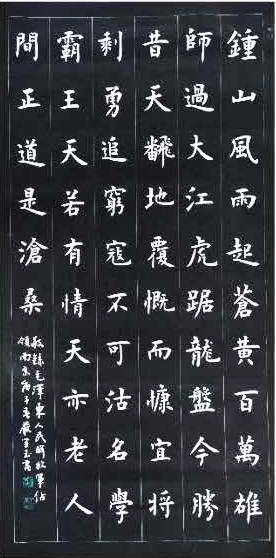 鍾山風雨起蒼黃百萬雄
師過大江虎踞龍盤今勝
昔天飜地覆慨而慷宜將
剩勇追窮寇不可沽名學
霸王天若有情天亦老人
間正道是滄桑
毛澤東人民解放軍佔
領南京庚子